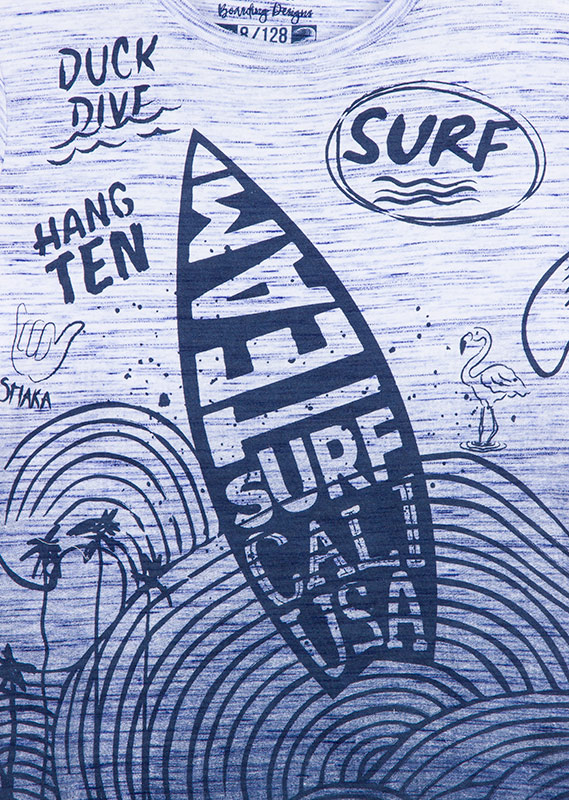 Boarding Designs
8/128
DUCK
DIVE
SURF
HANG
TEN
SHAKA
SURF
CALI
USA